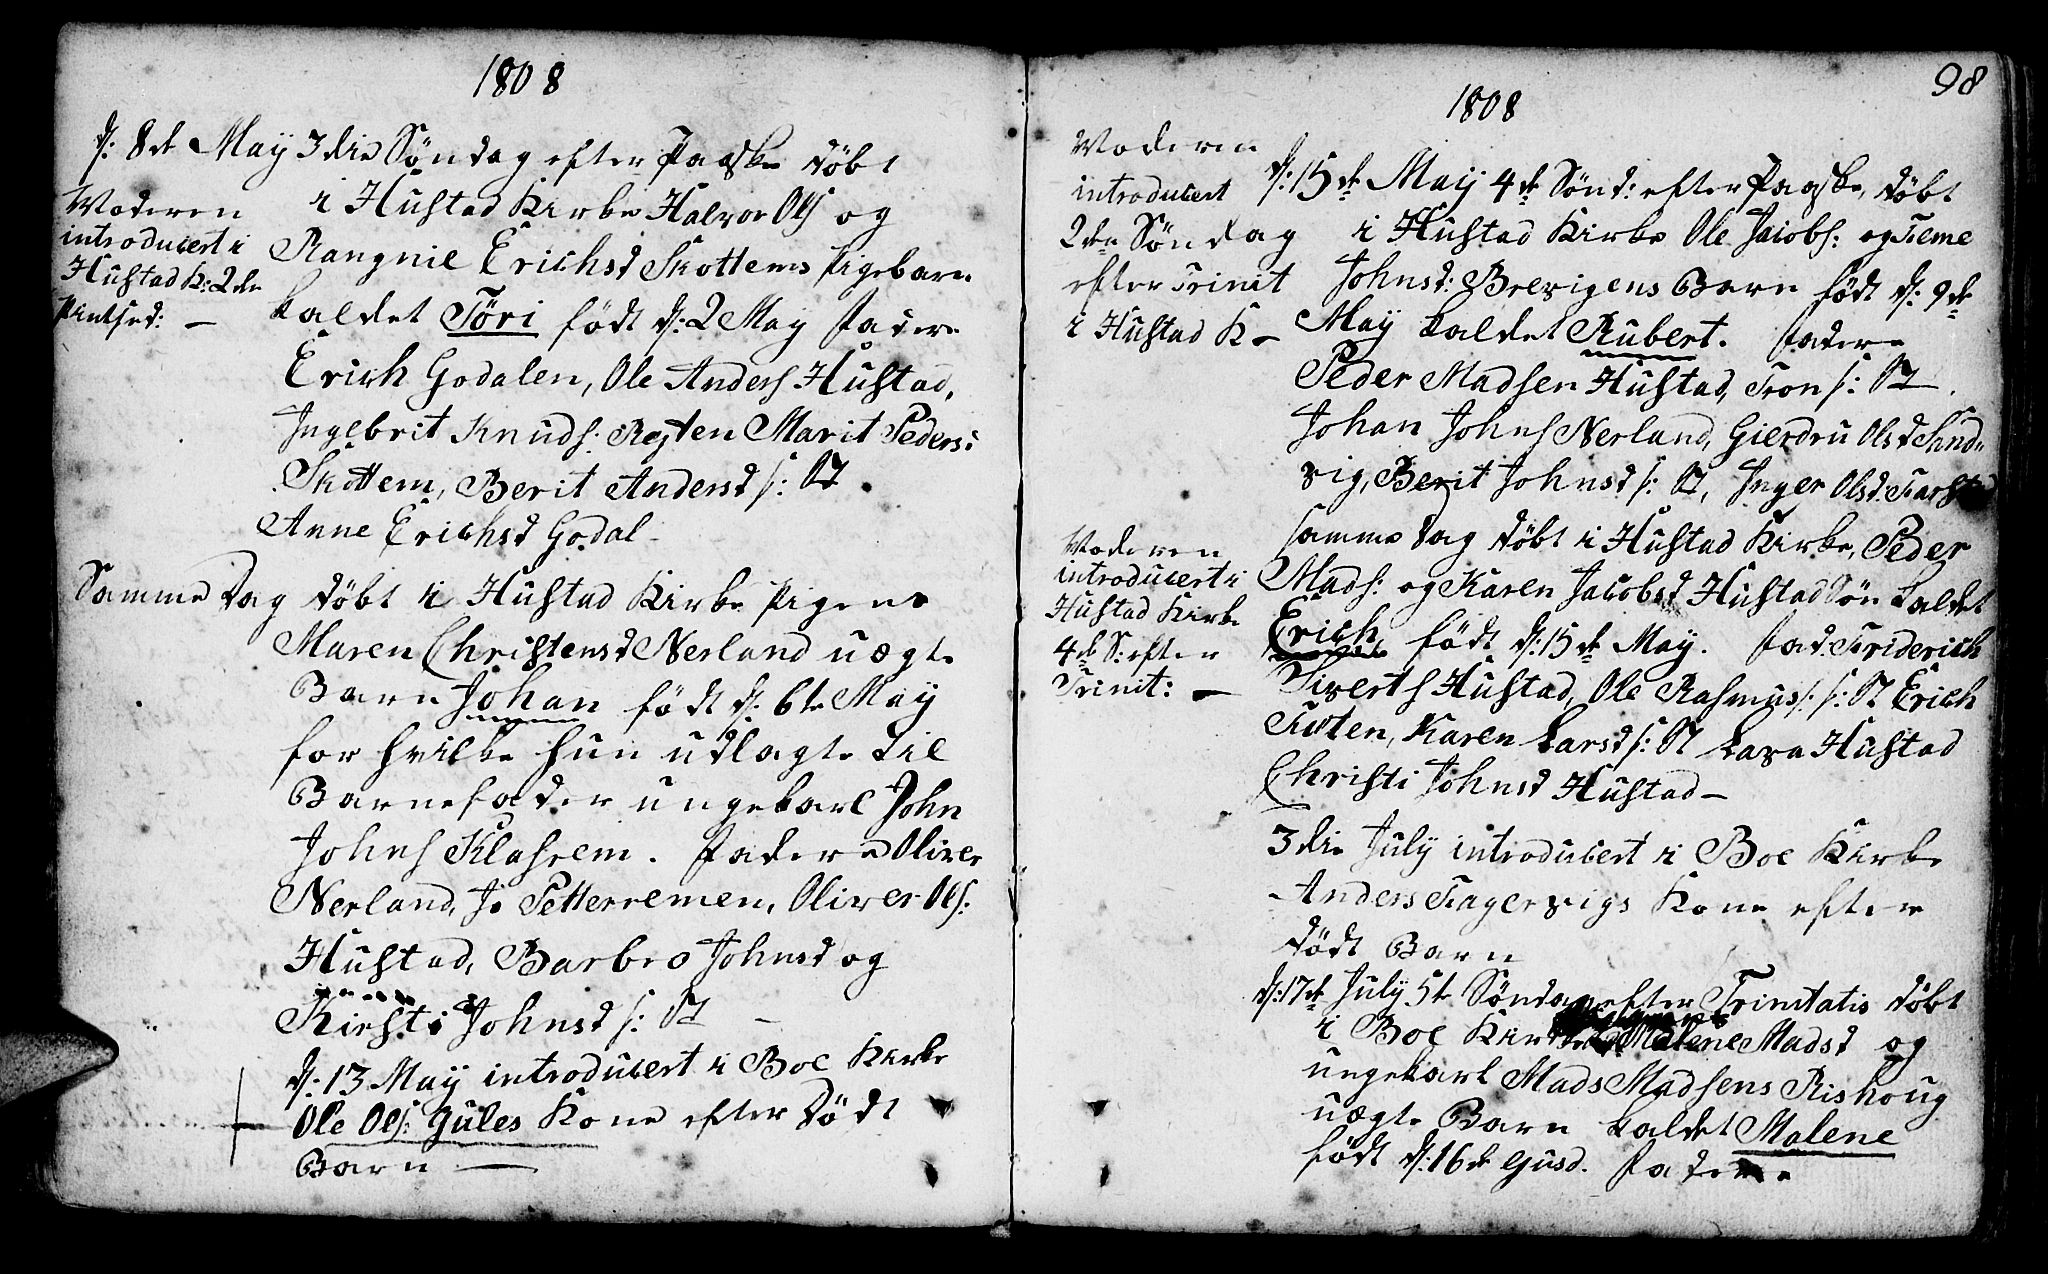 1808
d: 8de May 3die Søndag efter Paaske døbt
Moderen
introducert i
Hustad K: 2den
Pintsed: —
i Hustad Kirke Halvor Ols og
Rangnie Erichsd Skottems Pigebarn
kaldet Töri født d: 2 May Faddere
Erich Godalen, Ole Anders Hustad,
Ingebrit Knuds: Marit Peders:
Skottem, Berit Andersd s: St.
Anne Erichsd Godal
Samme Dag døbt i Hustad Kirke Pigens
Maren Christensd Nerland uægte
Barn Johan født d: 6te May
for hvilke hun udlagte til
Barnefader ungekarl John
Johns Klashem. Faddere Oliver
Nerland, Jo Petterremen, Oliver Ols:
Hustad, Barbro Johnsd og
Kirsti Johnsd s: St —
d: 13 May introducert i Boe Kirke
Ole Ols: Gules Kone efter Dødt
Barn —
98
1808
Moderen
introducert
2den Søndag
efter Trinit
i Hustad K —
d: 15de May 4de Sønd: efter Paaske, døbt
i Hustad Kirke Ole Jacobs: og
Johnsd: Brevigens Barn født d: 9de
May kaldet Rubert. Faddere
Peder Madsen Hustad, Tron s: St
Johan Johns Nerland, Gierdru Olsd Sand-
vig, Berit Johnsd s: St, Inger Olsd: Farstad
Moderen
introducert i
Hustad Kirke
4de S: efter
Trinit: —
samme Dag døbt i Hustad Kirke, Peder
Mads: og Karen Jacobsd Hustad Søn kaldet
Erich født d: 15de May. Fad: Friderich
Siverts Hustad, Ole Rasmus: s: St Erich
Karen Larsd s: St Lava Hustad
Christi Johnsd Hustad —
3die July introducert i Boe Kirke
Anders Fagervigs Kone efter
dødt Barn
d: 17de July 5te Søndag efter Trinitatis døbt
i Boe Kirke Malene Madsd og
ungekarl Mads Madsens Rishoug
uægte Barn kaldet Malene
født d: 16de Faddere